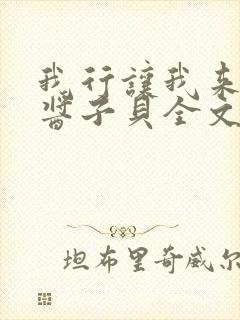 我行讓我来
醬子貝全文
坦布里奇威尔